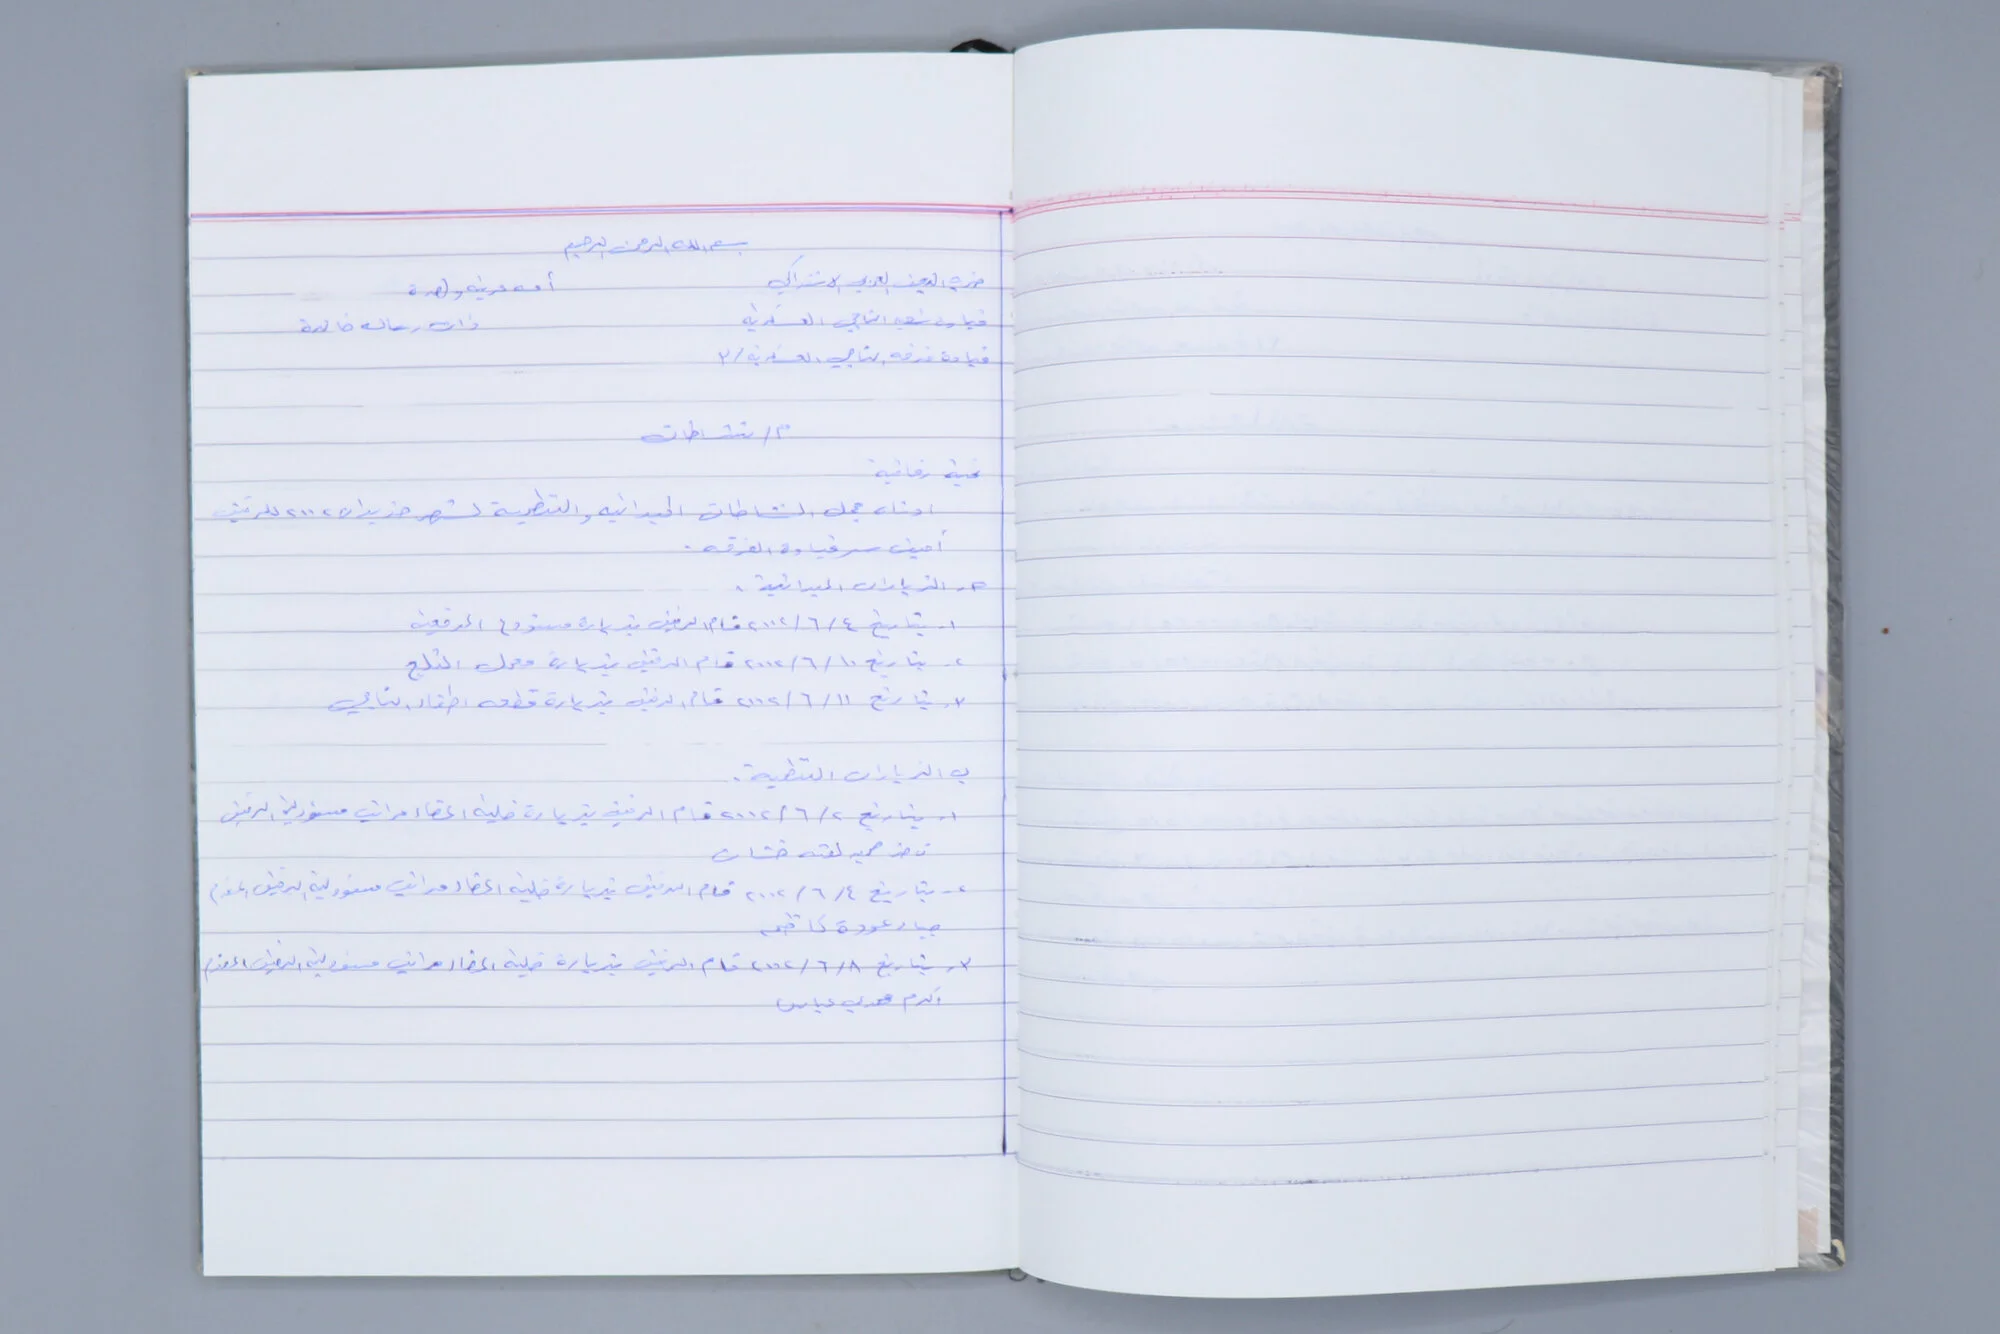 بسم الله الرحمن الرحيم
حزب البعث العربي الاشتراكي
أمة عربية واحدة
قيادة شعبة التاجي العسكرية
ذات رسالة خالدة
قيادة فرقة التاجي العسكرية/٣
م/ نشاطات
تحية رفاقية
ادناه مجمل النشاطات الميدانية والتنظيمية لشهر حزيران ٢٠٠٢ للرفيق
أمين سر قيادة الفرقة .
الزيارات الميدانية .
١- بتاريخ ٤/٦/٢٠٠٢ قام الرفيق بزيارة مستودع
٢- بتاريخ ١٠/٦/٢٠٠٢ قام الرفيق بزيارة معمل الثلج
٣- بتاريخ ١١/٦/٢٠٠٢ قام الرفيق بزيارة اطفاء التاجي
ب الزيارات التنظيمية .
١- بتاريخ ٢/٦/٢٠٠٢ قام الرفيق بزيارة خلية اعضاء مراتب مسؤولية الرفيق
حميد لفته
٢- بتاريخ ٤/٦/٢٠٠٢ قام الرفيق بزيارة خلية اعضاء مراتب مسؤولية الرفيق
جبار عودة كاظم
٣- بتاريخ ٨/٦/٢٠٠٢ قام الرفيق بزيارة خلية اعضاء مراتب مسؤولية الرفيق
اكرم مهدي عباس